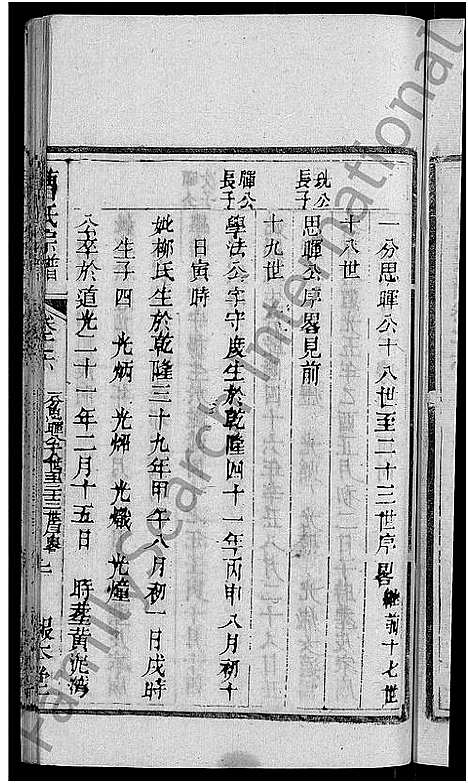 一分思暉公十八世至二十三世序畧 繼前十七世
十八世
公長子
思暉公序畧見前
十九世
暉公長子
學法公字守度生於乾隆四十一年丙申八月初十
日寅時
妣柳氏生於乾隆三十九年甲午八月初一日戌時
生子四 光炳 光 光熾 光
公卒於道光二十一年二月十五日 時葬黄泥灣
曹氏宗譜 卷之 一分思暉公十八世至二十三世序畧 上 報本堂
FamilySearch International